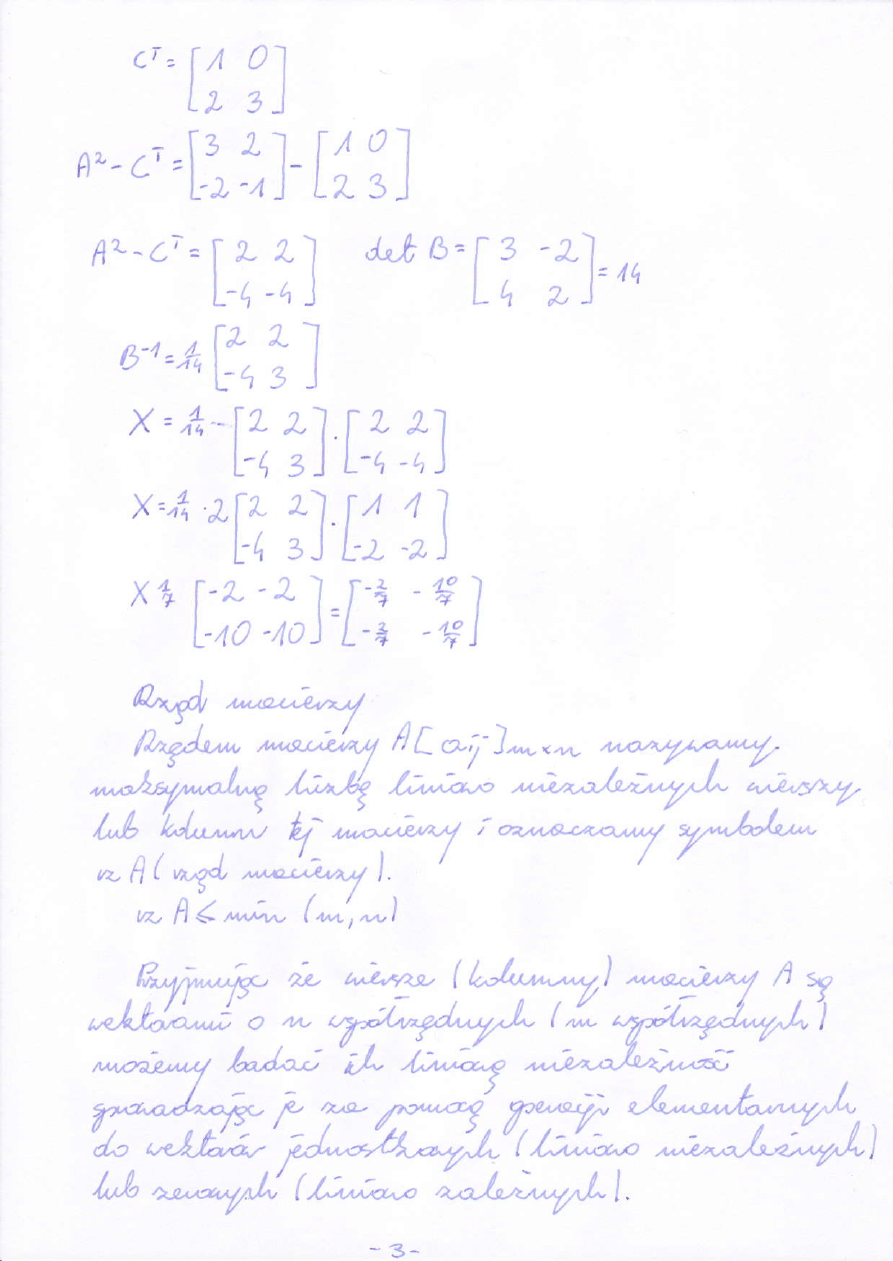 Cᵀ = [1 0
2 3]
A² - Cᵀ = [3 2
-2 -1] - [1 0
2 3]
A² - Cᵀ = [2 2
-4 -4] det B = [3 -2
4 2] = 14
B⁻¹ = 1/14 [2 2
-4 3]
X = 1/14 - [2 2
-4 3] · [2 2
-4 -4]
X = 1/14 · 2 [2 2
-4 3] · [1 1
-2 -2]
X 1/7 [-2 -2
-10 -10] = [-2/7 -10/7
-2/7 -10/7]
Rząd macierzy
Rzędem macierzy A[aij]m×n nazywamy
maksymalną liczbę liniowo niezależnych wierszy
lub kolumn tej macierzy i oznaczamy symbolem
rz A (rząd macierzy).
rz A ≤ min (m, n)
Przyjmując że wiersze (kolumny) macierzy A są
wektorami o n współrzędnych (m współrzędnych)
możemy badać ich liniową niezależność
sprowadzając je za pomocą operacji elementarnych
do wektorów jednostkowych (liniowo niezależnych)
lub zerowych (liniowo zależnych).
-3-